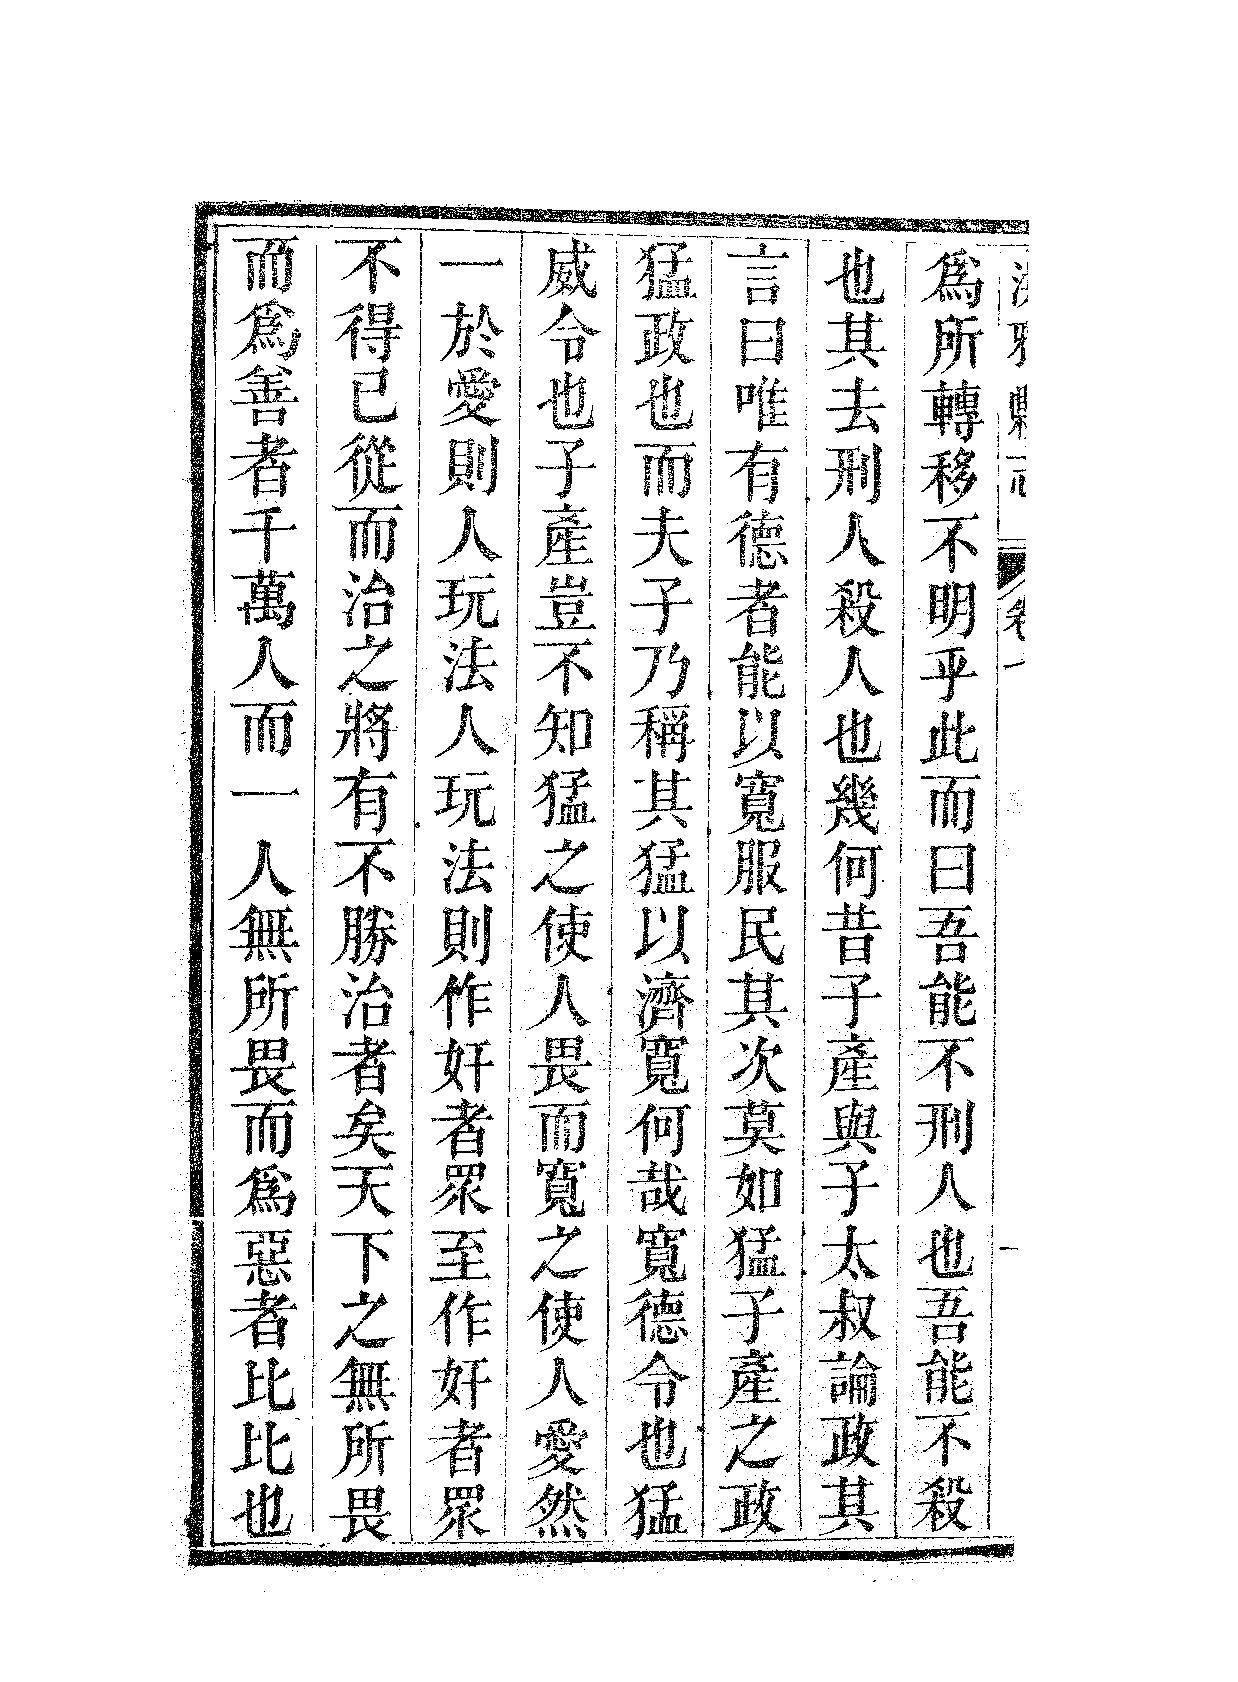 爲所轉移不明乎此而曰吾能不刑人也吾能不殺
也其去刑人殺人也幾何昔子產與子太叔論政其
言曰唯有德者能以寬服民其次莫如猛子產之政
猛政也而夫子乃稱其猛以濟寬何哉寬德令也猛
威令也子產豈不知猛之使人畏而寬之使人愛然
一於愛則人玩法人玩法則作奸者眾至作奸者眾
不得已從而治之將有不勝治者矣天下之無所畏
而爲善者千萬人而一人無所畏而爲惡者比比也